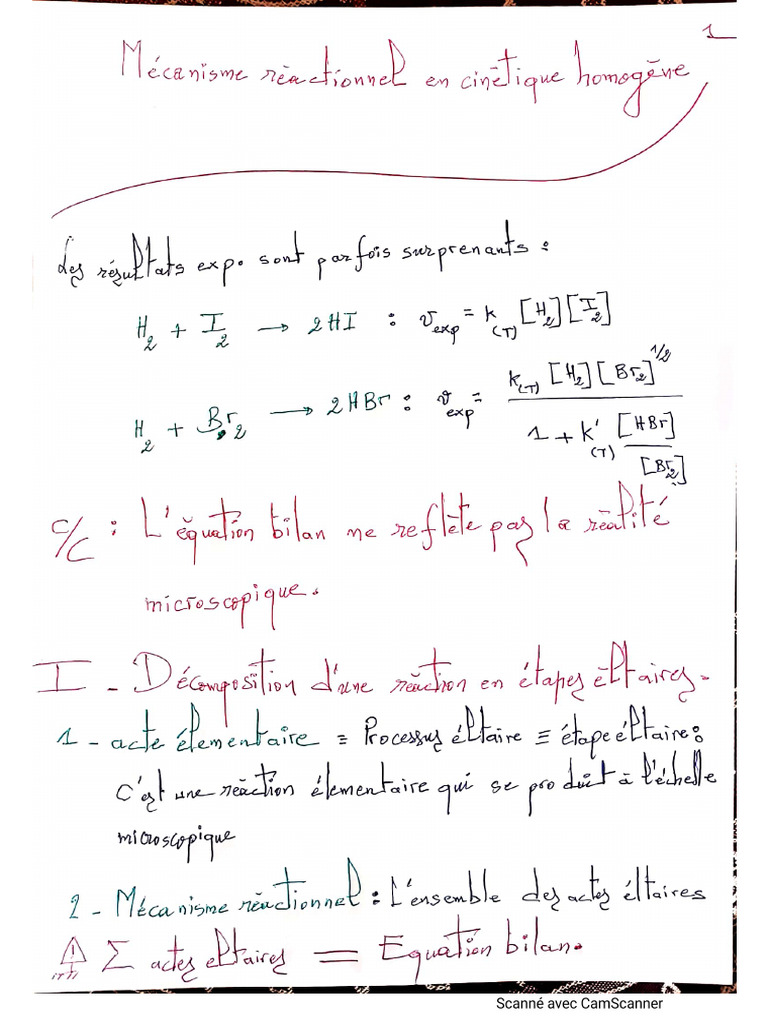 1
Mécanisme réactionnel en cinétique homogène
Les résultats exp. sont parfois surprenants :
H2 + I2 → 2HI : v_exp = k(T) [H2][I2]
H2 + Br2 → 2HBr : v_exp = k(T) [H2][Br2]^1/2 / (1 + k'(T) [HBr]/[Br2])
c/c : L'équation bilan ne reflète pas la réalité
microscopique.
I - Décomposition d'une réaction en étapes éltaires.
1 - acte élementaire ≡ Processus éltaire ≡ étape éltaire :
c'est une réaction élementaire qui se produit à l'échelle
microscopique
2 - Mécanisme réactionnel : L'ensemble des actes éltaires
⚠ Σ actes eltaires = Equation bilan.
Scanné avec CamScanner